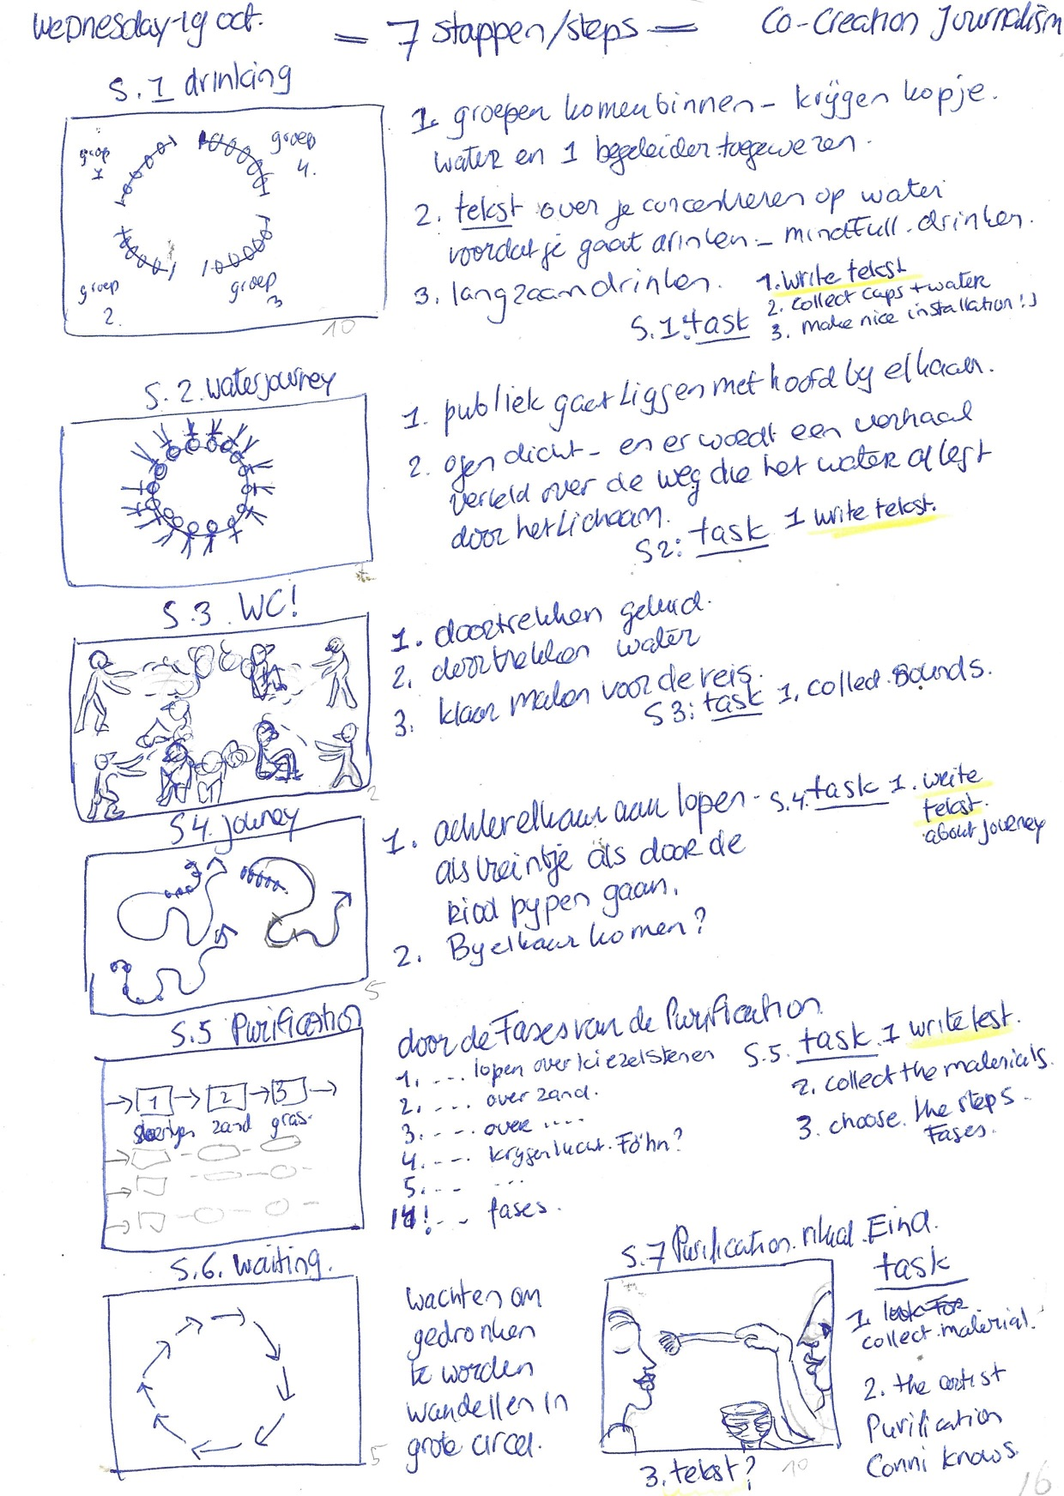 Wednesday-19 oct.
= 7 stappen/steps =
Co-Creation Journalism
S.1 drinking
groep 1
groep 4.
groep 2.
groep 3
10
1. groepen komen binnen - krijgen kopje.
water en 1 begeleider toegewezen.
2. tekst over je concentreren op water
voordat je gaat drinken - mindfull.drinken.
3. langzaam drinken.
S.1: task
1. write tekst
2. collect cups + water
3. make nice installation!)
S.2. waterjourney
1. publiek gaat liggen met hoofd by elkaar.
2. ogen dicht - en er wordt een verhaal
verteld over de weg die het water aflegt
door het lichaam.
S2: task 1 write tekst.
S.3 WC!
2
1. doortrekken geluid.
2. doortrekken water
3. klaar maken voor de reis.
S3: task 1. collect sounds.
S4. journey
5
1. achterelkaar aan lopen -
als treintje als door de
riool pypen gaan.
2. By elkaar komen?
S.4. task 1. write
tekst.
about journey
S.5 Purification
1 2 3
zand gras.
door de Fases van de Purification
1. ... lopen over kiezelstenen
2. .... over zand.
3. .... over ....
4. .... krygen lucht. Föhn?
5. .. ...
!- .. fases.
S.5. task. 1 write test.
2. collect the materials.
3. choose the steps.
Fases.
S.6. waiting.
5
wachten om
gedronken
te worden
wandellen in
grote circel.
S.7 Purification. ritual. Eind.
10
3. tekst?
task
1. look For
collect material.
2. the artist
Purification
Conni knows.
16